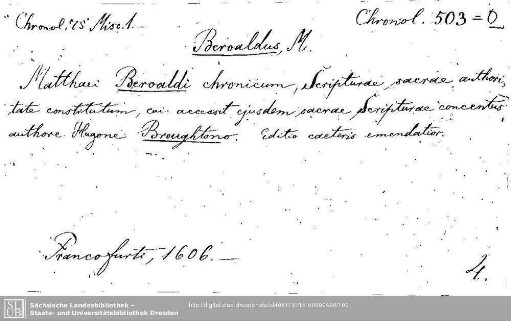 Chronol. 75 Misc. 1. Chronol. 503 = O
Beroaldus, M.
Matthaei Beroaldi chronicum, Scripturae sacrae authori,
tate constitutum, cui accessit ejusdem sacrae Scripturae concentus
authore Hugone Broughtono. Editio caeteris emendatior.
Francofurti, 1606. —
4.
SLUB
Sächsische Landesbibliothek –
Staats- und Universitätsbibliothek Dresden